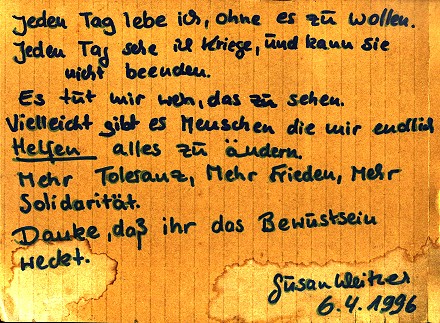 Jeden Tag lebe ich, ohne es zu wollen.
Jeden Tag sehe ich Kriege, und kann sie
nicht beenden.
Es tut mir weh, das zu sehen.
Vielleicht gibt es Menschen die mir endlich
Helfen alles zu ändern.
Mehr Toleranz, Mehr Frieden, Mehr
Solidarität.
Danke, daß ihr das Bewustsein
weckt.
Susan
6.4.1996